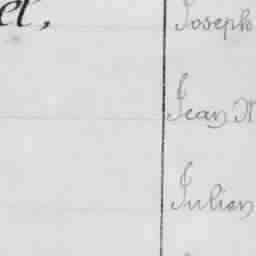 el,
Joseph
Jean N
Julien